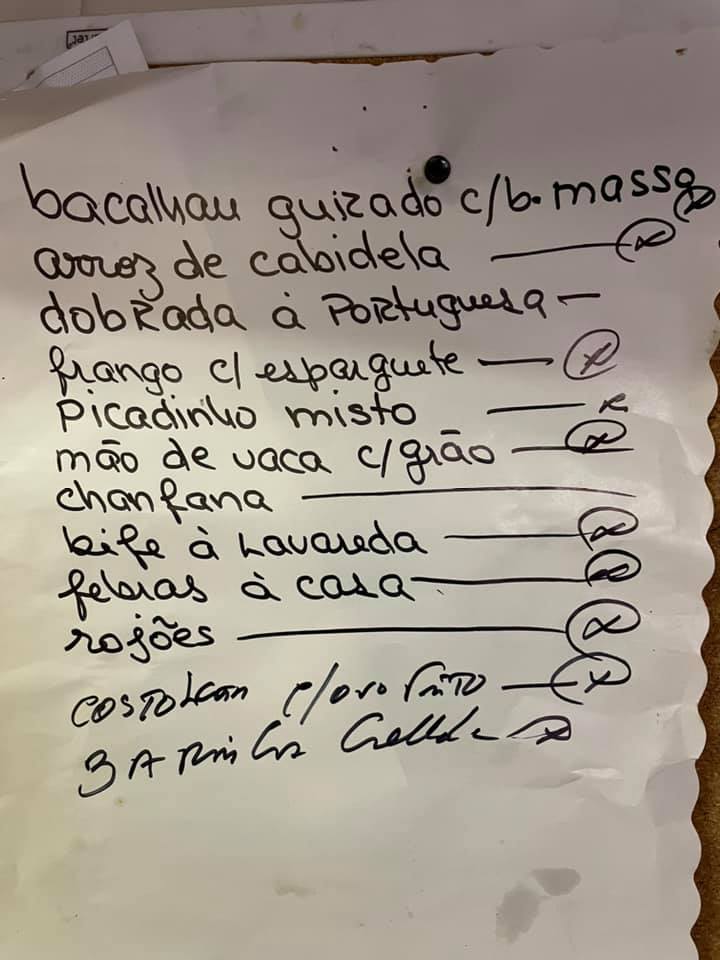 bacalhau guizado c/b. massa
arroz de cabidela
dobrada à Portuguesa
frango c/ esparguete
Picadinho misto
mão de vaca c/grão
chanfana
bife à Lavareda
febras à casa
rojões
c/ovo frito